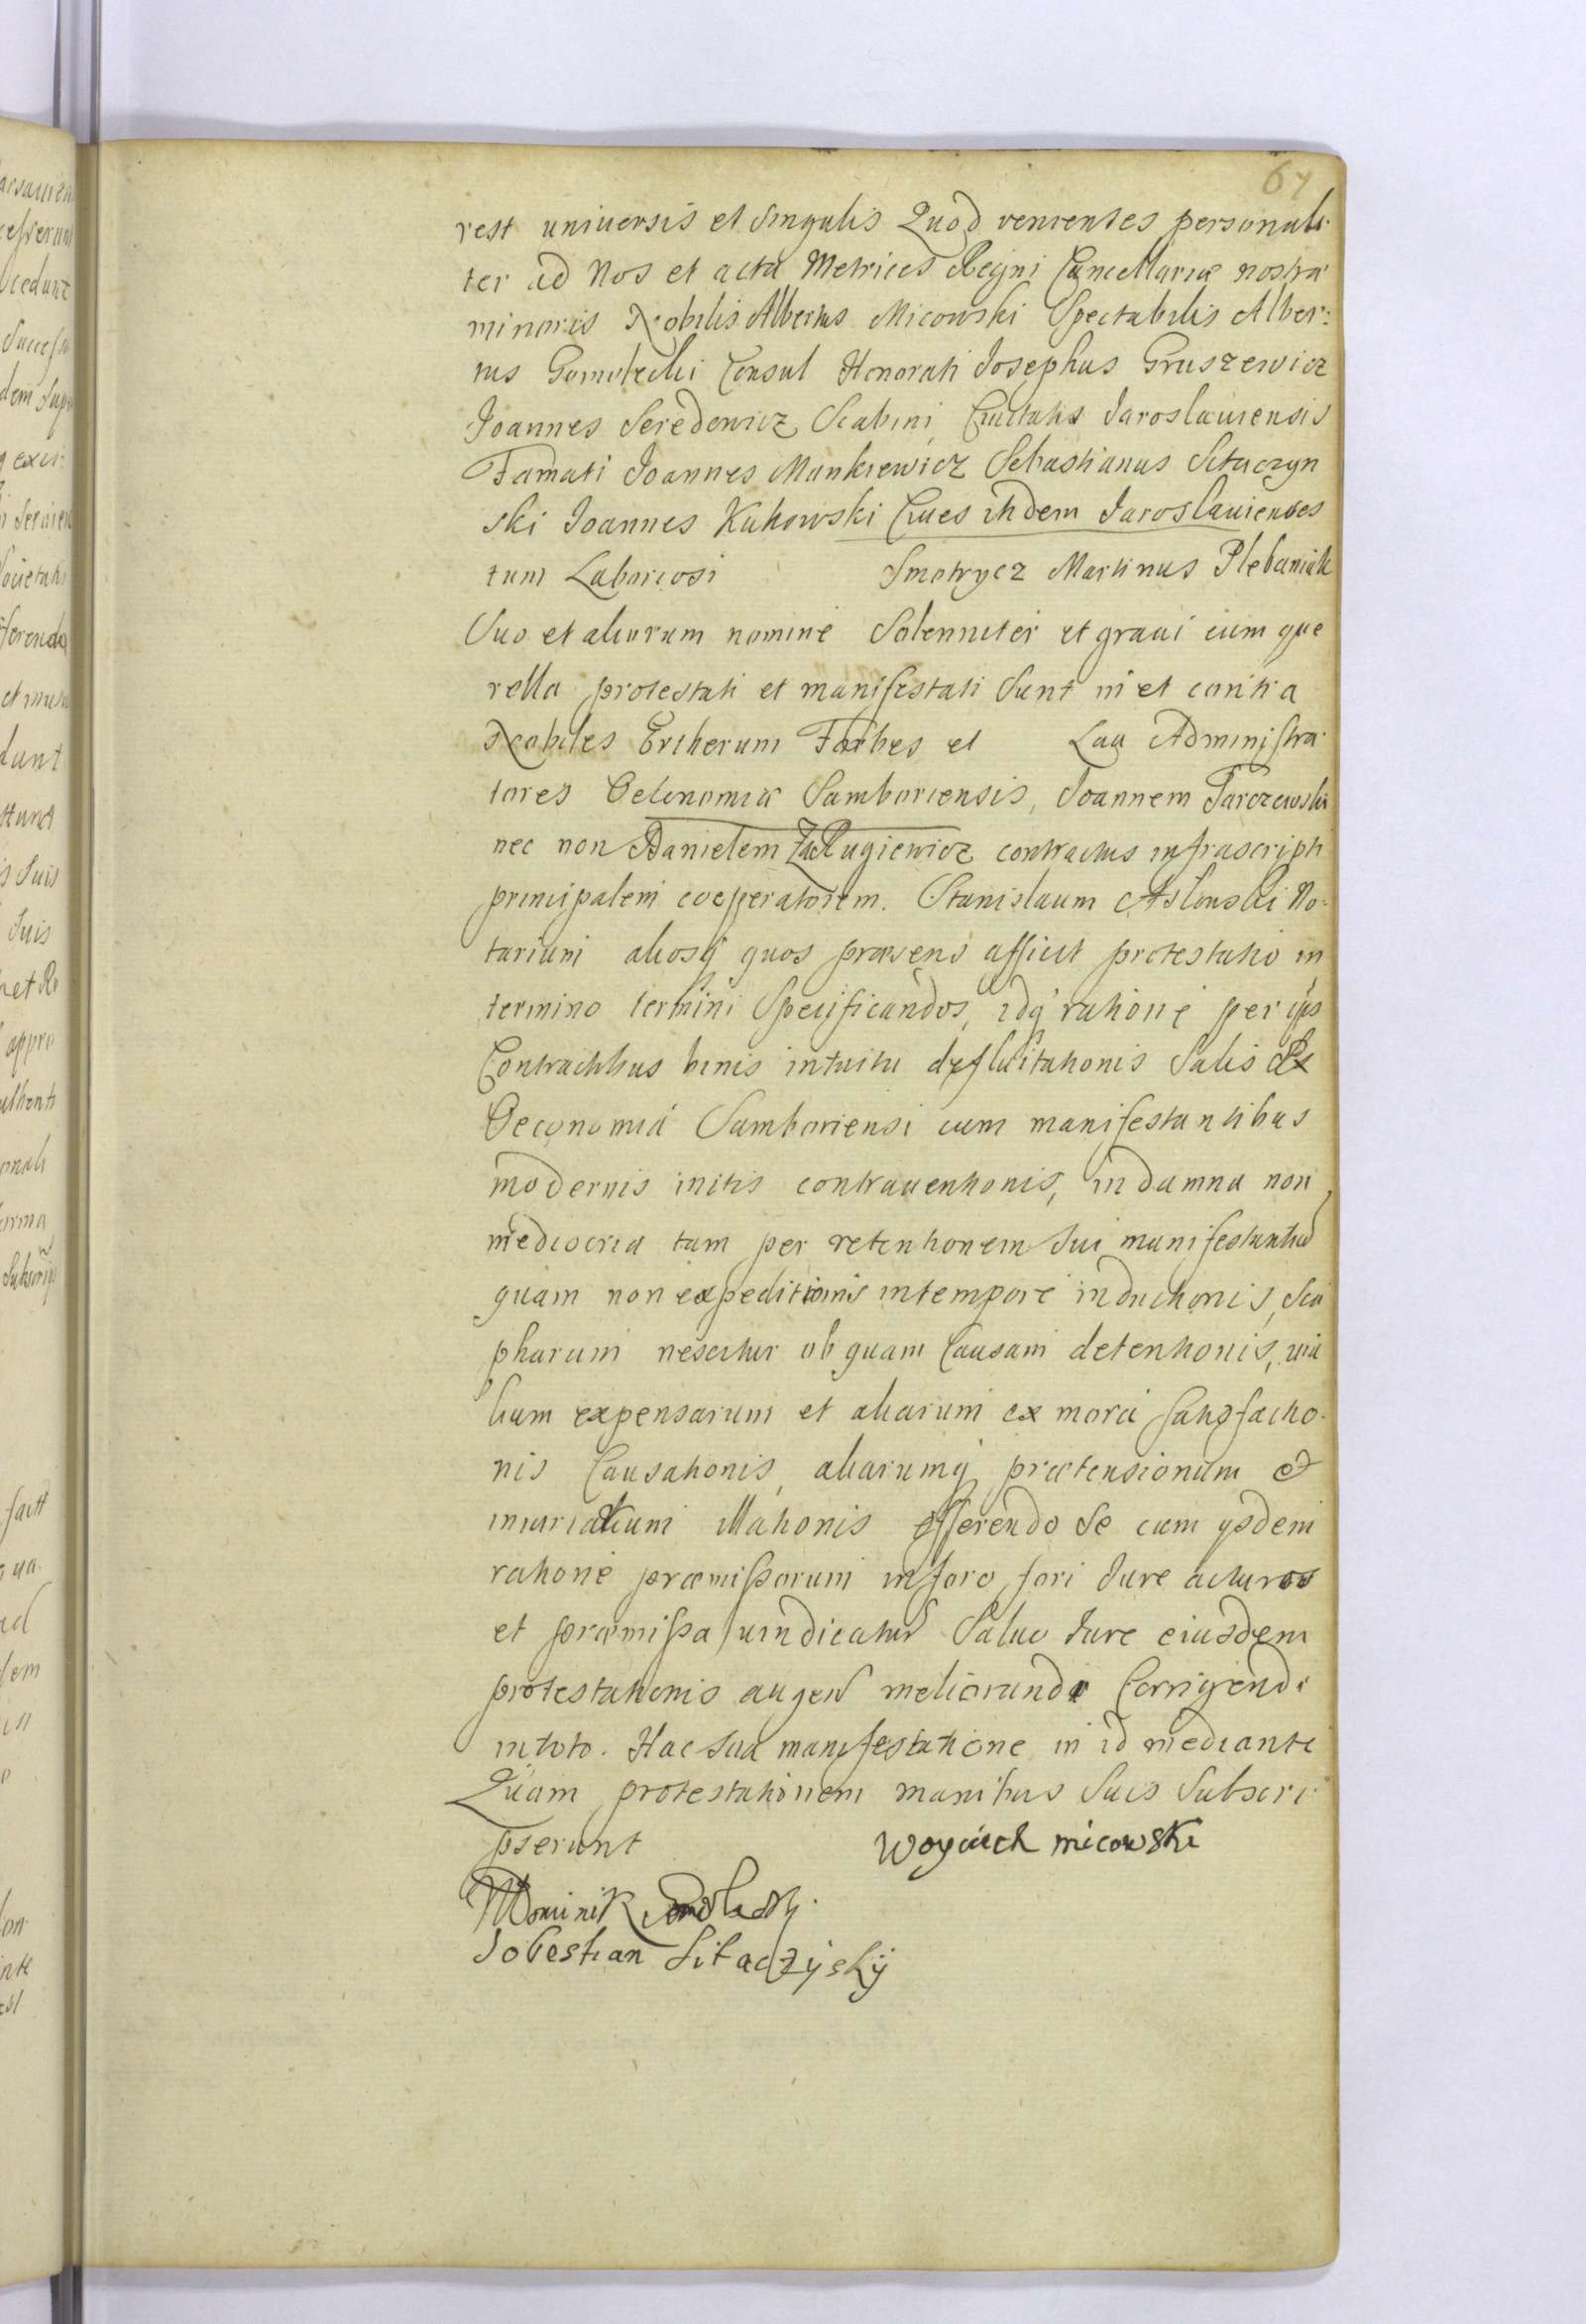 67
rest uniuersis et Singulis Quod venientes personali
ter ad Nos et acta Metrices Regni Cancellariæ nostræ
minoris Nobilis Albertus Micowski Spectabilis Alber:
tus Gomolecki Consul Honorati Josephus Gruszewicz
Joannes Seredowicz Scabini, Ciuitatis Jaroslauiensis
Famati Joannes Mankiewicz Sebastianus Sitaczyn
ski Joannes Kukowski Ciues itidem Jaroslauienses
tum Laboriosi Smotrycz Martinus Plebaniak
Suo et aliorum nomine Solenniter et graui cum que
rella protestati et manifestati Sunt in et contra
Nobiles Forbes et Lau Administra
tores Oeconomiæ Samboriensis, Joannem Parczewski
nec non Danielem ZaRugiewicz contractus infrascripti
principalem cooperatorem. Stanislaum Aslonski No:
tarium aliosq quos præsens afficit protestatio in
termino termini Specificandos, idq ratione per ipsos
Contractibus binis intuitu defluitationis Salis Ex
Oeconomia Samboriensi cum manifestantibus
modernis initis contrauentionis, in damna non
mediocria tam per retentionem Sui manifestantiũ
quam non expeditionis intempore inductionis, Sca
pharum nescitur ob quam Causam detentionis, uia
lium expensarum et aliarum ex mora satisfactio
nis Causationis, aliarumq prætensionum et
iniuriarum illationis offerendo Se cum ysdem
ratione præmissorum in foro fori Jure acturos
et præmissa uindicatur̃ Saluo Jure eiusdem
protestationis augen̄ meliorandi Corrigendi
in toto. Hac Sua manifestatione in id mediante
Quam protestationem manibus Suis Subscri
pserunt Woyciech micowski
Dominik
Sobestian Sitaczÿskÿ